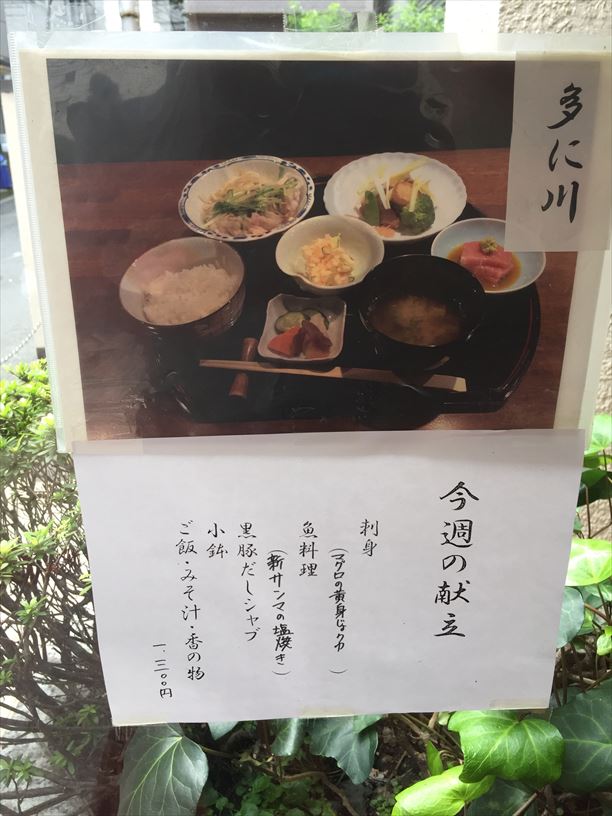 多に川
今週の献立
刺身
(マグロの黄身じょうゆ)
魚料理
(新サンマの塩焼き)
黒豚だしシャブ
小鉢
ご飯・みそ汁・香の物
一、三〇〇円